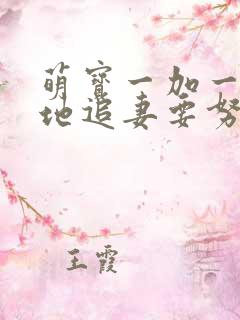 萌宝一加一
地追妻要努
王霞